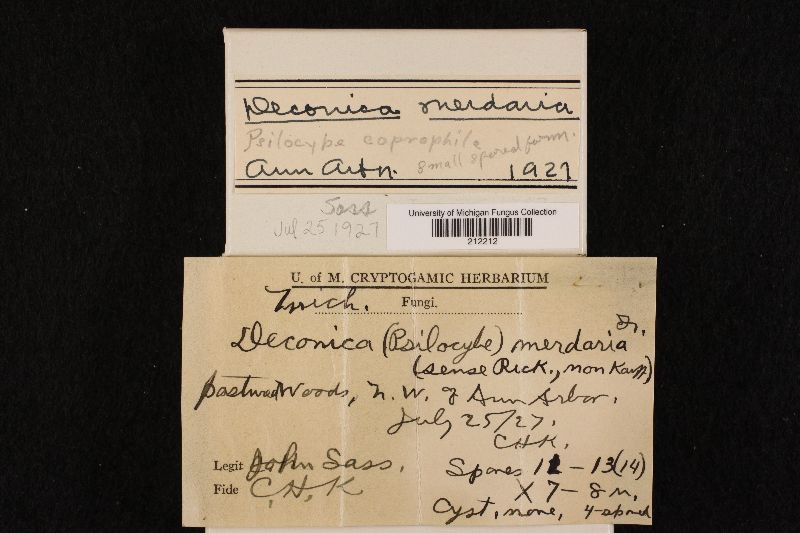 Deconica merdaria
Psilocybe coprophila
small spored form.
Ann Arbor. 1927
Sass
Jul 25 1927
University of Michigan Fungus Collection
212212
U. of M. CRYPTOGAMIC HERBARIUM
Mich. Fungi.
Deconica (Psilocybe) merdaria Fr.
(sense Rick., non Kauff)
pastured Woods, N.W. of Ann Arbor.
July 25/27.
C.H.K.
Legit John Sass. Spores 12-13(14)
Fide C.H.K X 7-8 µ,
Cyst, none, 4-spored